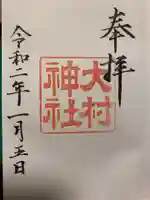 奉拝
大村
神社
令和二年一月五日